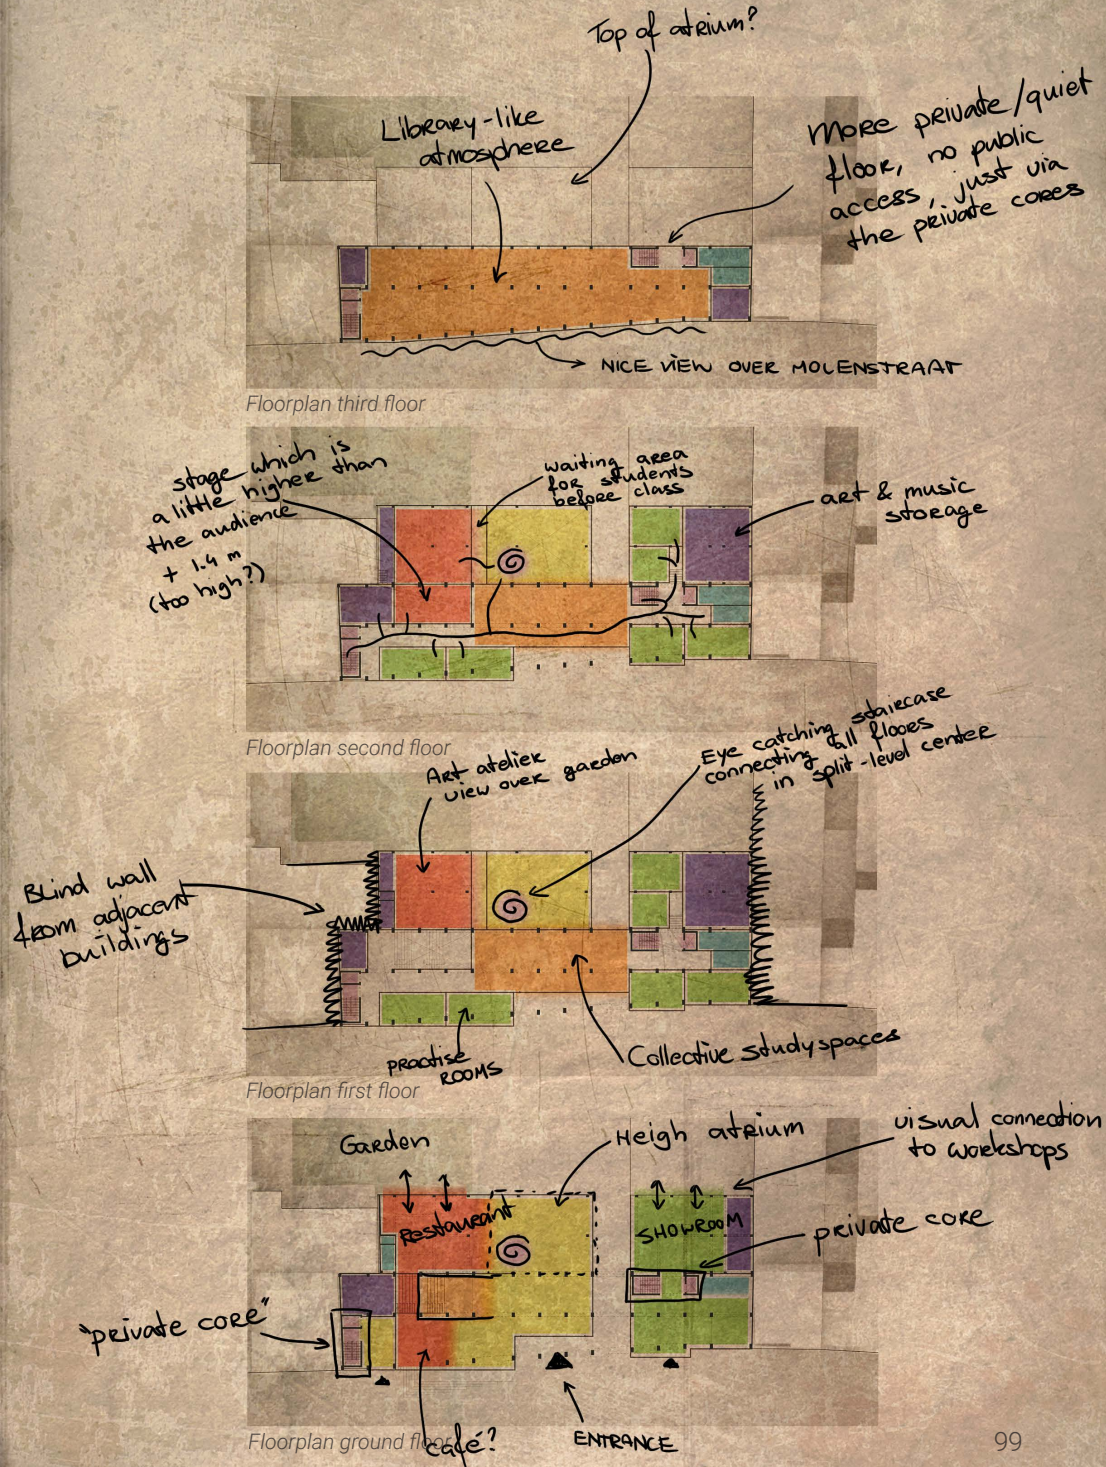 Top of atrium?
Library-like
atmosphere
More private/quiet
floor, no public
access, just via
the private cores
NICE VIEW OVER MOLENSTRAAT
Floorplan third floor
stage which is
a little higher than
the audience
+ 1.4 m
(too high?)
waiting area
for students
before class
art & music
storage
Floorplan second floor
Art atelier
view over garden
Eye catching staircase
connecting all floors
in split-level center
Blind wall
from adjacent
buildings
practise
rooms
Collective studyspaces
Floorplan first floor
Garden
Heigh atrium
visual connection
to workshops
Restaurant
SHOWROOM
private core
"private core"
café?
ENTRANCE
Floorplan ground floor
99